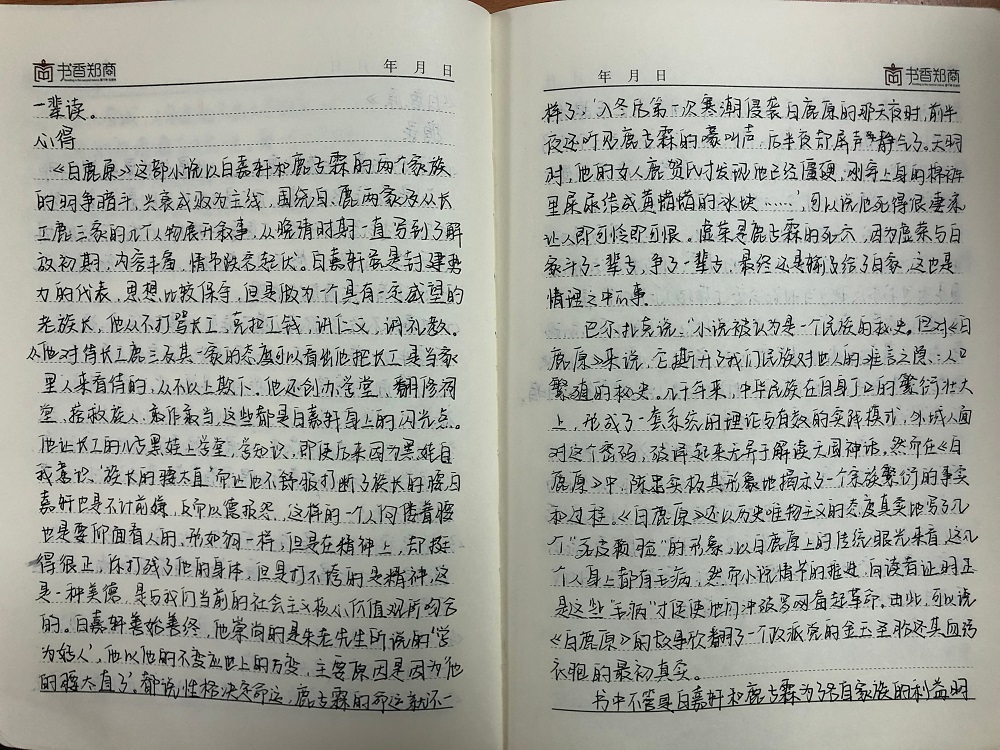 书香郑商
年 月 日
一辈读。
心得
《白鹿原》这部小说以白嘉轩和鹿子霖的两个家族
的明争暗斗,兴衰成败为主线,围绕白、鹿两家及从长
工鹿三家的几个人物展开叙事,从晚清时期一直写到了解
放初期,内容丰富,情节跌宕起伏。白嘉轩虽是封建势
力的代表,思想比较保守,但是做为一个具有一定威望的
老族长,他从不打骂长工,克扣工钱,讲仁义,调礼数。
从他对待长工鹿三及其一家的态度可以看出他把长工是当家
里人来看待的,从不以上欺下。他还创办学堂、翻修祠
堂、拯救族人,敢作敢当,这些都是白嘉轩身上的闪光点。
他让长工的儿子黑娃上学堂,学知识,即使后来因为黑娃自
我意识,'族长的腰太直'而让他不舒服打断了族长的腰,白
嘉轩也是不计前嫌,反而以德报怨。这样的一个人佝偻着腰
也是要仰面看人的,形如狗一样,但是在精神上,却挺
得很正,你打残了他的身体,但是打不垮的是精神,这
是一种美德,是与我们当前的社会主义核心价值观所吻合
的。白嘉轩善始善终,他崇尚的是朱老先生所说的'学
为好人',他以他的不变应世上的万变,主要原因是因为'他
的腰太直了'。都说性格决定命运,鹿子霖的命运就不一
年 月 日
书香郑商
样了,'入冬后第一次寒潮侵袭白鹿原的那天夜时,前半
夜还听见鹿子霖的嚎叫声,后半夜却屏声静气了。天明
时,他的女人鹿贺氏才发现他已经僵硬,刚穿上身的棉裤
里屎尿结成黄蜡蜡的冰块……',可以说他死得很凄惨
让人即可怜即可恨。虚荣是鹿子霖的死穴,因为虚荣与白
家斗了一辈子,争了一辈子,最终还是输了给了白家,这也是
情理之中的事。
巴尔扎克说:"小说被认为是一个民族的秘史。但对《白
鹿原》来说,它撕开了我们民族对他人的难言之隐:人口
繁殖的秘史。几千年来,中华民族在自身人口的繁衍壮大
上,形成了一套系统的理论与有效的实践模式,外域人面
对这个密码,破译起来无异于解读天国神话,然而在《白
鹿原》中,陈忠实极其形象地揭示了一个家族繁衍的事实
和过程。《白鹿原》还以历史唯物主义的态度真实地写了几
个"死皮赖脸"的形象,以白鹿原上的传统眼光来看,这几
个人身上都有毛病,然而小说情节的推进,向读者证明正
是这些'毛病'才促使他们冲破罗网奋起革命。由此,可以说
《白鹿原》的故事掀翻了一个政派党的金玉圣胎还其血污
衣胞的最初真实。
书中不管是白嘉轩和鹿子霖为了各自家族的利益明